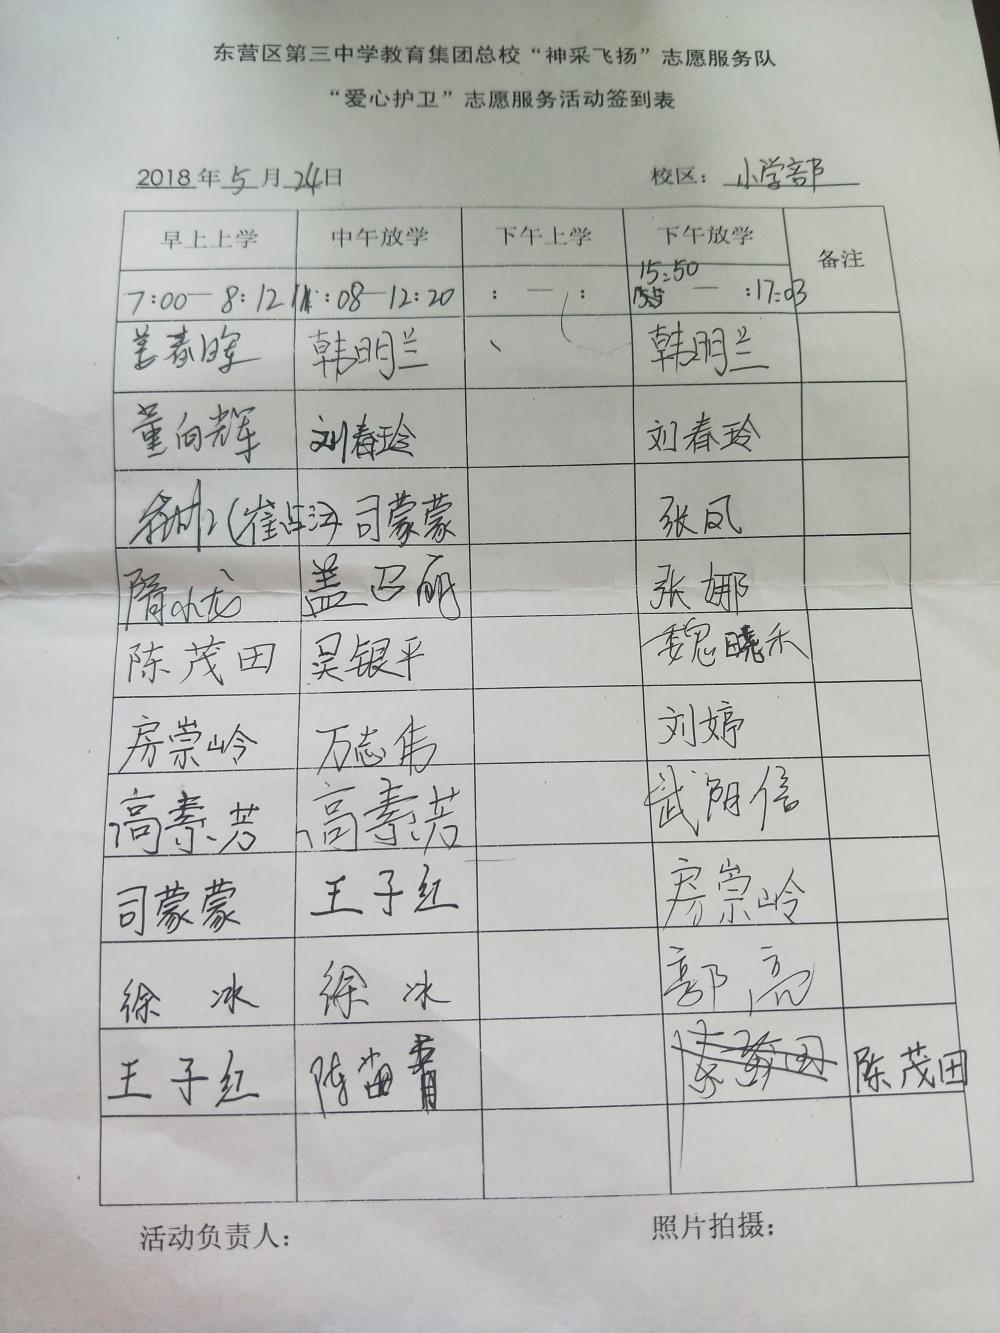 东营区第三中学教育集团总校“神采飞扬”志愿服务队
“爱心护卫”志愿服务活动签到表
2018年5月24日 校区：小学部
早上上学 中午放学 下午上学 下午放学 备注
7:00—8:12 11:08—12:20 : — : 15:50 — :17:03
姜春晖 韩明兰 韩明兰
董向辉 刘春玲 刘春玲
(崔占江) 司蒙蒙 张凤
隋小龙 盖卫丽 张娜
陈茂田 吴银平 魏晓禾
房崇岭 万志伟 刘婷
高素芳 高素芳 武朋信
司蒙蒙 王子红 房崇岭
徐冰 徐冰 郭亮
王子红 陈海青 陈茂田
活动负责人： 照片拍摄：